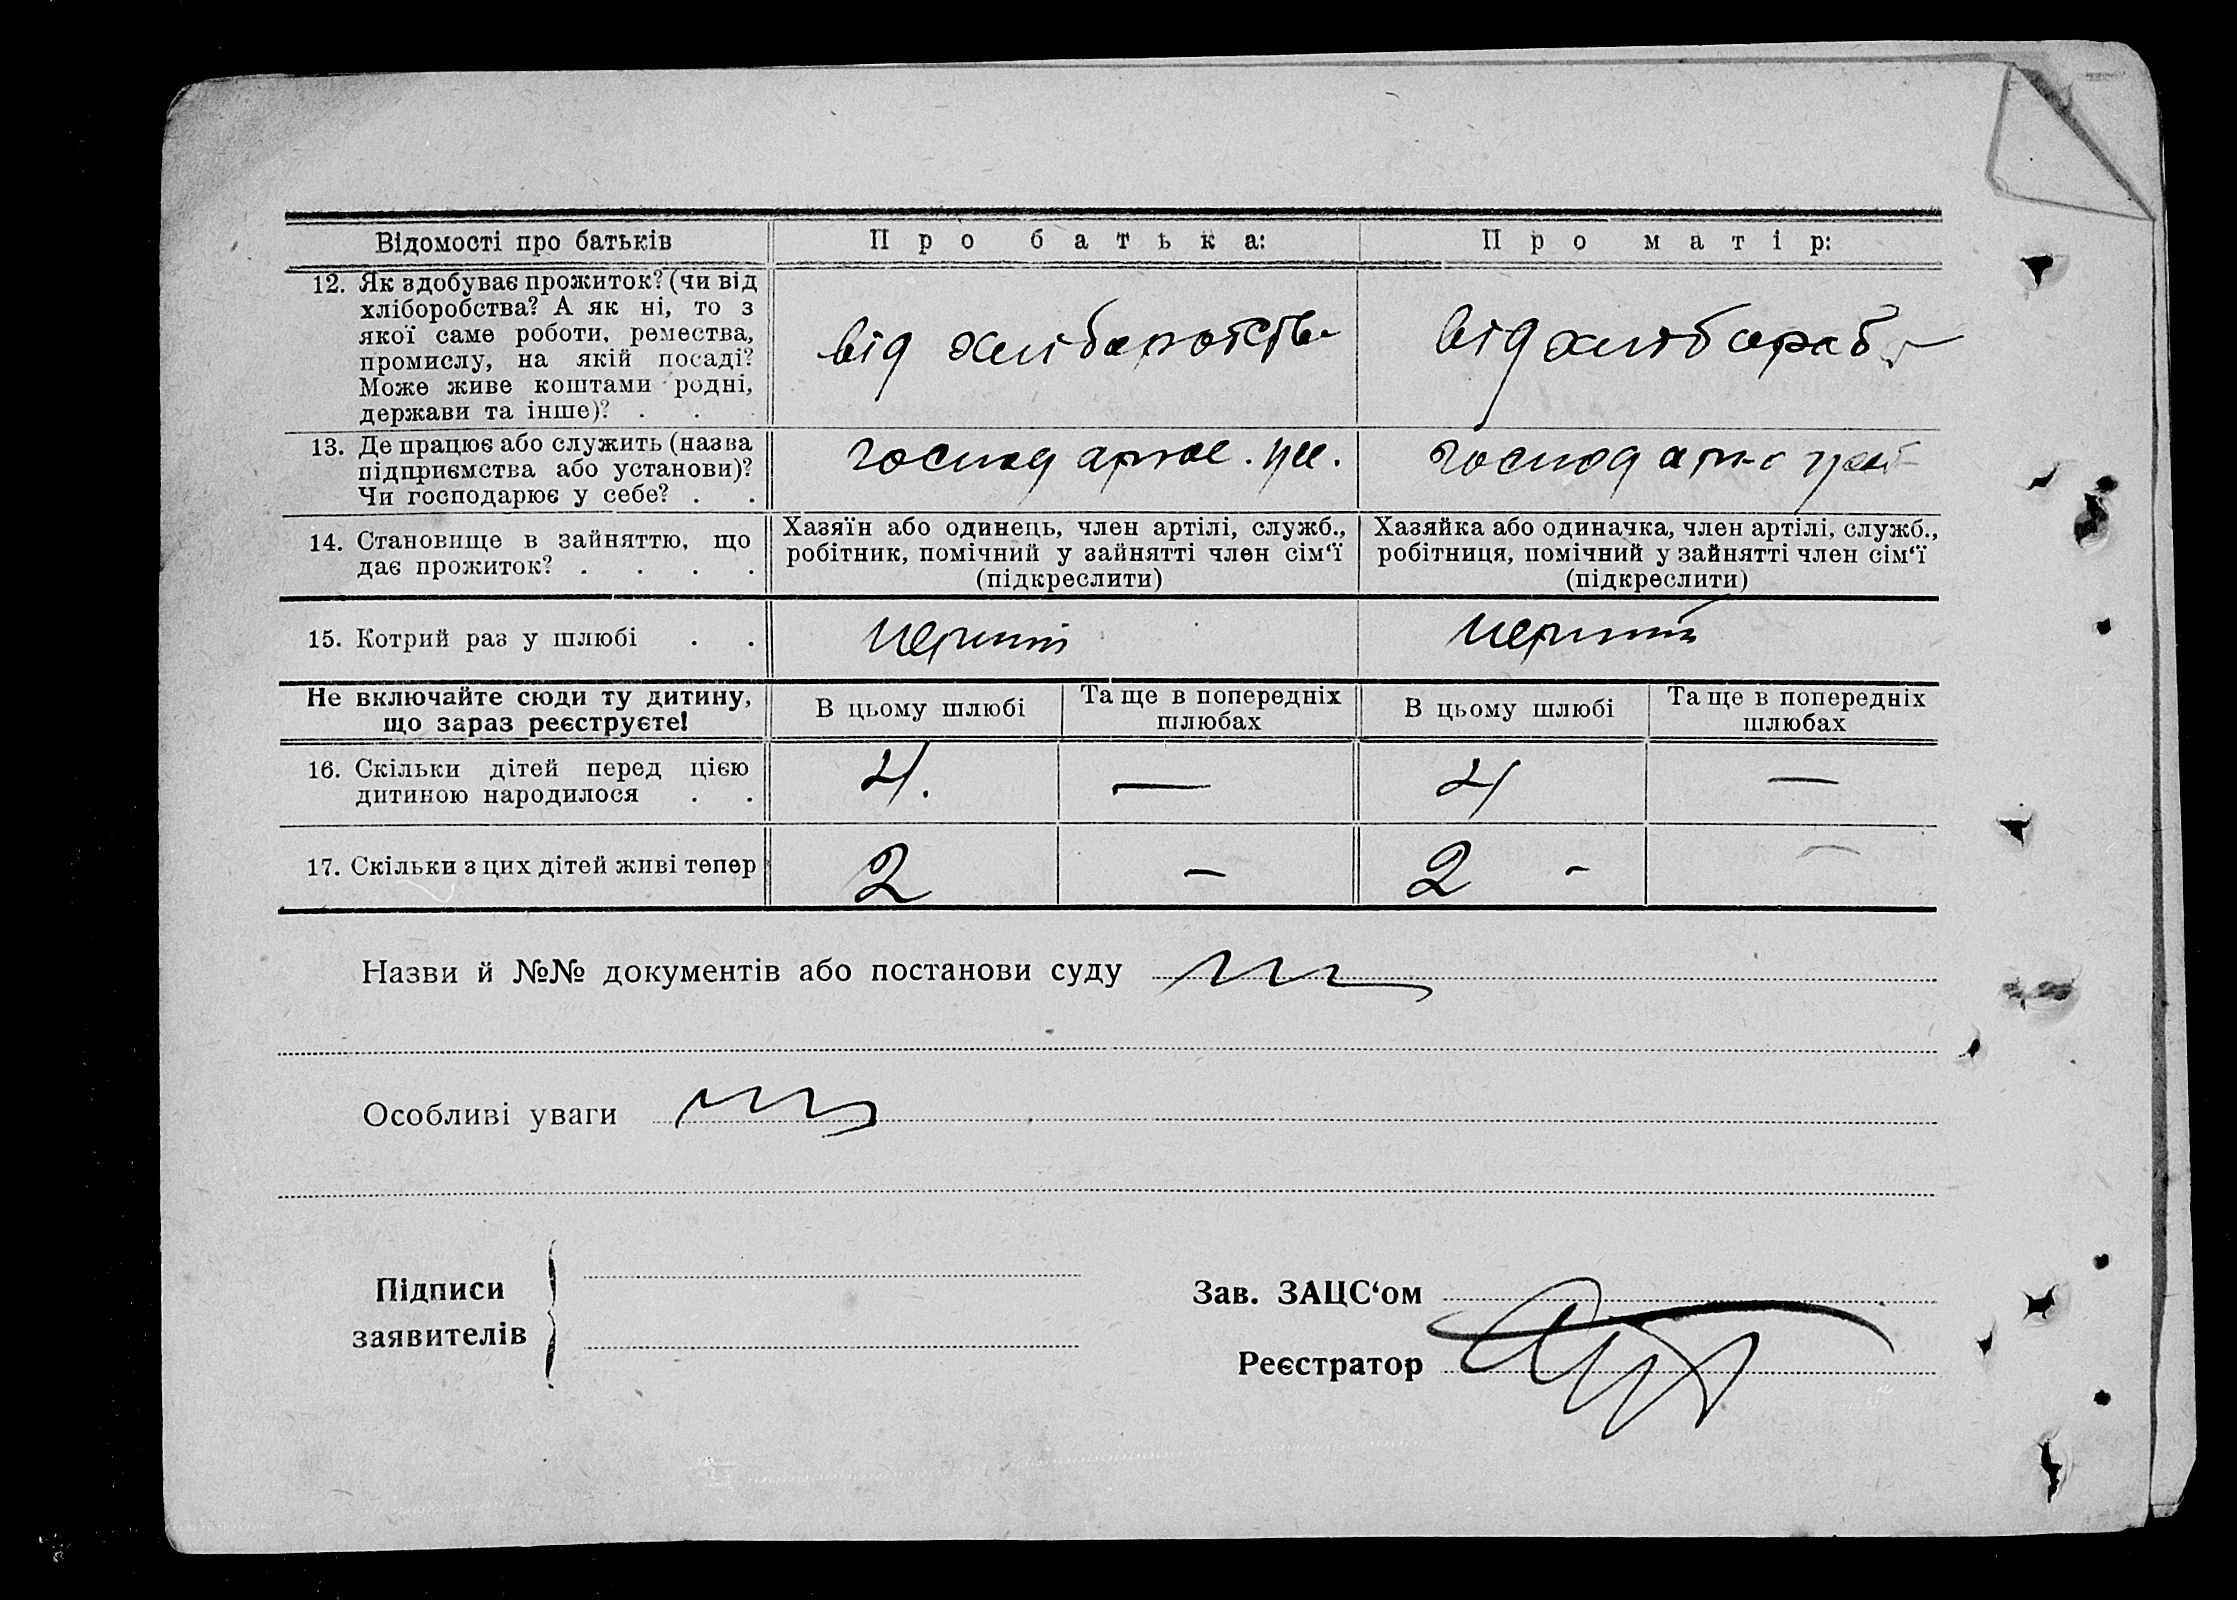 Відомості про батьків
Про батька:
Про матір:
12. Як здобуває прожиток? (чи від
хліборобства? А як ні, то з
якої саме роботи, ремества,
промислу, на якій посаді?
Може живе коштами родні,
держави та інше)? . .
від хліборобств
від хлібороб
13. Де працює або служить (назва
підприємства або установи)?
Чи господарює у себе? . .
господарює
господар
14. Становище в зайняттю, що
дає прожиток? . . . .
Хазяїн або одинець, член артілі, служб.,
робітник, помічний у зайнятті член сім‘ї
(підкреслити)
Хазяйка або одиначка, член артілі, служб.,
робітниця, помічний у зайнятті член сім‘ї
(підкреслити)
15. Котрий раз у шлюбі . .
перший
перший
Не включайте сюди ту дитину,
що зараз реєструєте!
В цьому шлюбі
Та ще в попередніх
шлюбах
В цьому шлюбі
Та ще в попередніх
шлюбах
16. Скільки дітей перед цією
дитиною народилося . .
4.
—
4
—
17. Скільки з цих дітей живі тепер
2
–
2 -
–
Назви й №№ документів або постанови суду
Особливі уваги
Підписи
заявителів
Зав. ЗАЦС‘ом
Реєстратор